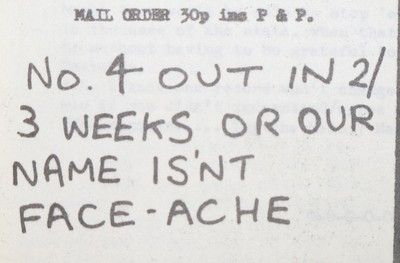 MAIL ORDER 30p inc P & P.
NO. 4 OUT IN 2/
3 WEEKS OR OUR
NAME IS'NT
FACE-ACHE